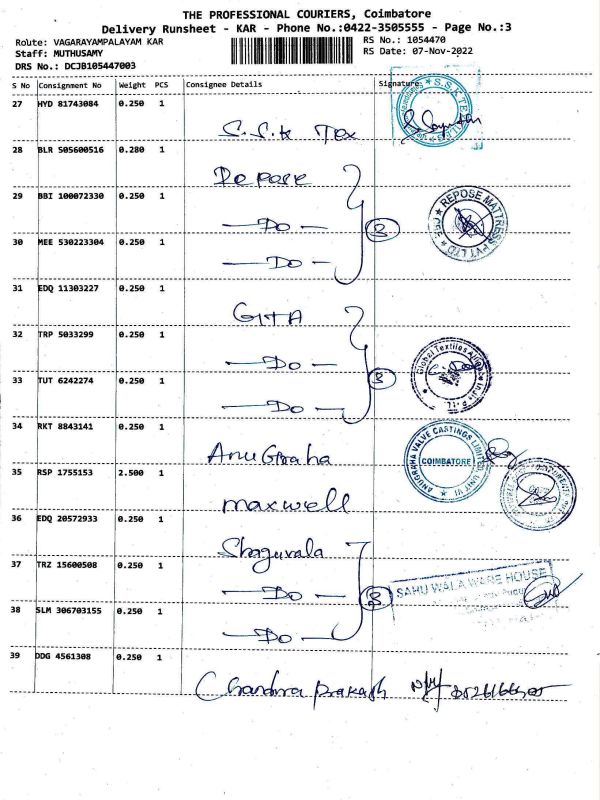 THE PROFESSIONAL COURIERS, Coimbatore
Delivery Runsheet - KAR - Phone No.:0422-3505555 - Page No.:3
Route: VAGARAYAMPALAYAM KAR
RS No.: 1054470
Staff: MUTHUSAMY
RS Date: 07-Nov-2022
DRS No.: DCJB105447003
S No Consignment No Weight PCS Consignee Details Signature
27 HYD 81743084 0.250 1
S.S.K Tex
28 BLR 505600516 0.280 1
Repose
29 BBI 100072330 0.250 1
—Do—
30 MEE 530223304 0.250 1
—Do—
3
REPOSE MATTRESS PVT LTD
31 EDQ 11303227 0.250 1
GITA
32 TRP 5033299 0.250 1
—Do—
33 TUT 6242274 0.250 1
—Do—
3
Global Textiles
34 RKT 8843141 0.250 1
AnuGraha
ANUGRAHA VALVE CASTINGS LIMITED, UNIT VI
COIMBATORE
35 RSP 1755153 2.500 1
maxwell
36 EDQ 20572933 0.250 1
Shaguvala
37 TRZ 15600508 0.250 1
—Do—
38 SLM 306703155 0.250 1
—Do—
SAHU WALA WARE HOUSE
39 DDG 4561308 0.250 1
Chandra Prakash